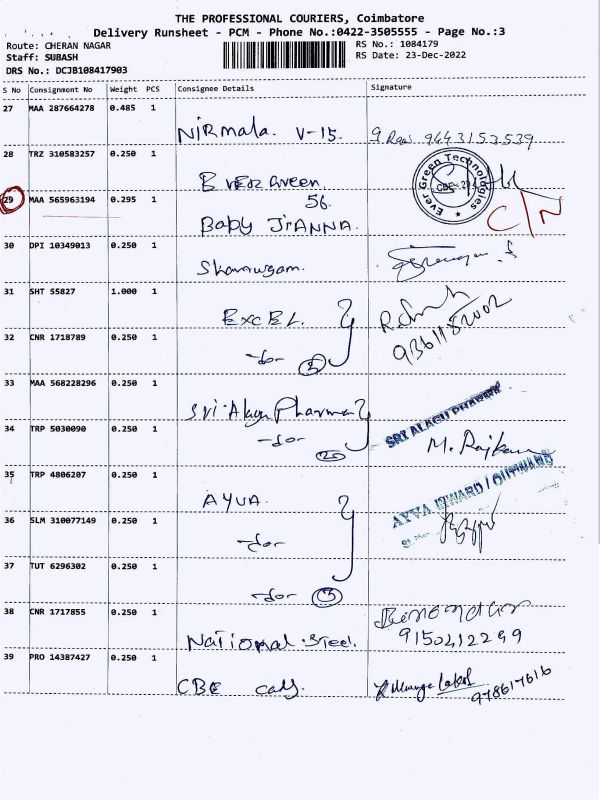 THE PROFESSIONAL COURIERS, Coimbatore
Delivery Runsheet - PCM - Phone No.:0422-3505555 - Page No.:3
Route: CHERAN NAGAR
Staff: SUBASH
DRS No.: DCJB108417903
RS No.: 1084179
RS Date: 23-Dec-2022
S No Consignment No Weight PCS Consignee Details Signature
27 MAA 287664278 0.485 1
Nirmala. V-15. 9443153539
28 TRZ 310583257 0.250 1
Ever Green. Ever Green Technologies
56.
29 MAA 565963194 0.295 1 C/N
Baby JIANNA.
30 DPI 10349013 0.250 1
31 SHT 55827 1.000 1
EXCEL. 9361182002
32 CNR 1718789 0.250 1
-do-
33 MAA 568228296 0.250 1
Sri Alagu Pharma SRI ALAGU PHARMA
34 TRP 5030090 0.250 1
-do- M. Rajkum
35 TRP 4806207 0.250 1
AYVA. AYVA INWARD / OUTWARD
36 SLM 310077149 0.250 1
-do-
37 TUT 6296302 0.250 1
-do-
38 CNR 1717855 0.250 1
National Steel. 9150412299
39 PRO 14387427 0.250 1
CBE 978617616